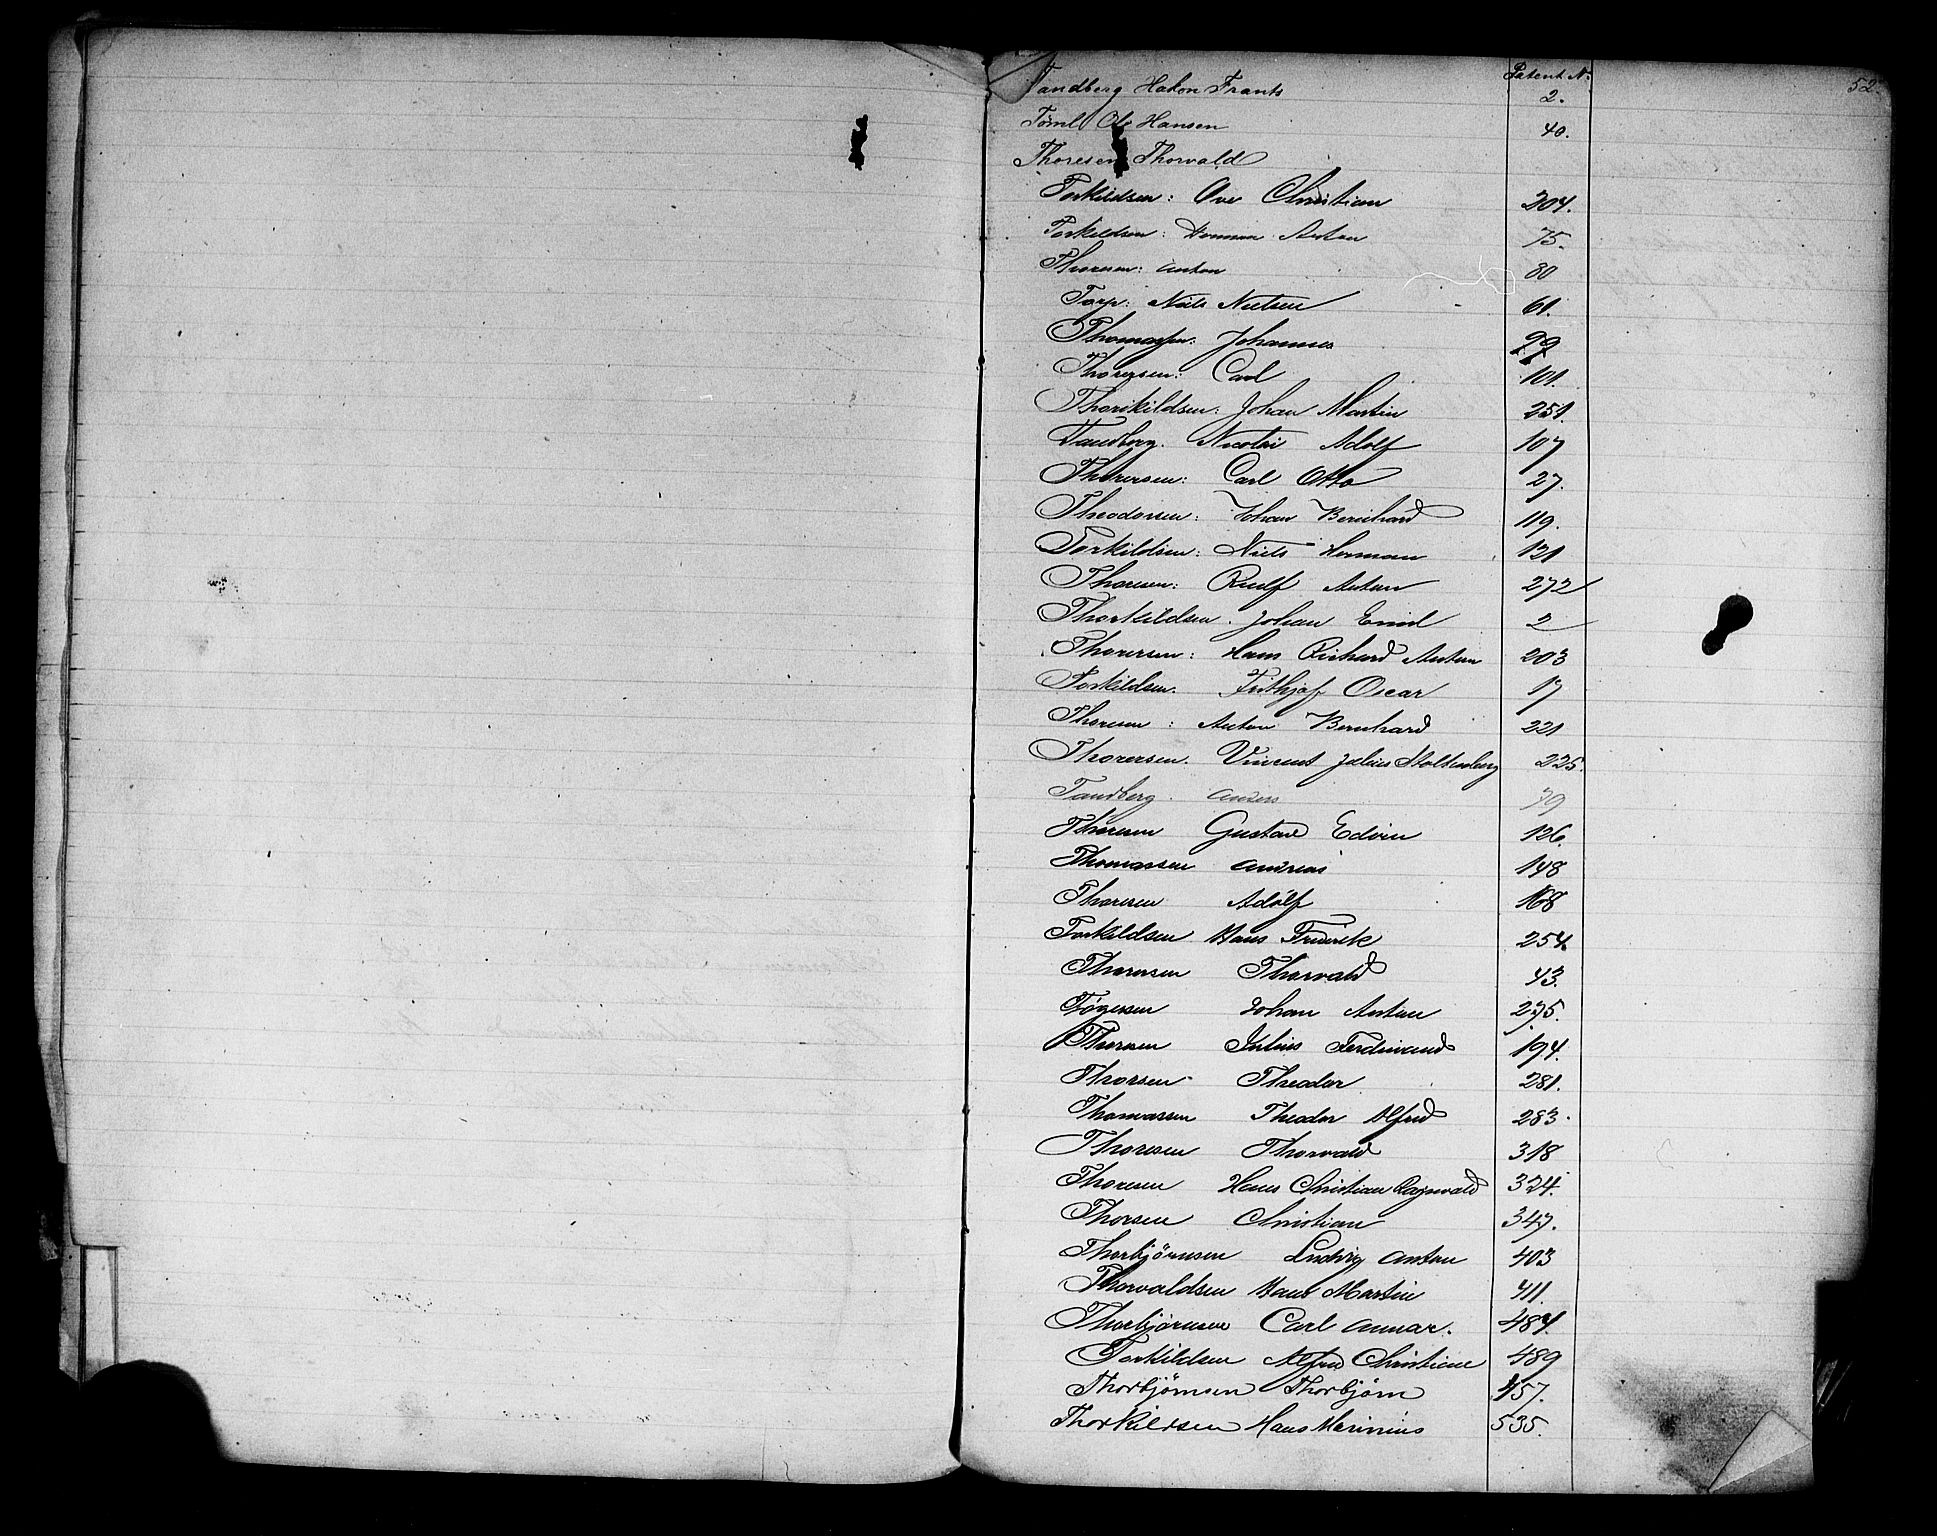 Patent N.
52.
Tandberg Hakon Frants 2.
Tøml Ole Hansen 40.
Thoresen Thorvald
Torkildsen: Ove Christian 204.
Torkildsen: Herman Anton 75.
Thoresen: Anton 80
Torp: Niels Nielsen 61.
Thomassen: Johannes 99
Thoresen: Carl 101.
Thorikildsen: Johan Martin 251.
Tandberg. Nicolai Adolf 107
Thoresen: Carl Otto 27.
Theodorsen: Johan Bernhard 119.
Torkildsen: Niels Herman 121
Thoresen: Rudlf Anton 272
Thorkildsen. Johan Emil 2
Thoresen: Hans Richard Anton 203
Torkildsen. Frithjof Oscar 17
Thoresen: Anton Bernhard 221
Thoresen. Vincent Julius Stoltenberg 225.
Tandberg. Anders 79
Thoresen Gustav Edvin 126.
Thomassen Andreas 148
Thoresen Adolf 168
Torkildsen Hans Fredrik 254.
Thoresen Thorvald 43.
Tøgersen Johan Anton 275.
Thoresen Julius Ferdinand 194.
Thorsen Theodor 281.
Thomassen Theodor Alfred 283.
Thoresen Thorvald 318
Thoresen Hans Christian Ragnvald 324.
Thorsen Christian 347.
Thorbjørnsen Ludvig Anton 403
Thorvaldsen Hans Martin 411
Thorbjørnsen Carl Annar. 484.
Torkildsen Alfred Christian 489
Thorbjørnsen Thorbjørn 457.
Thorkildsen Hans Marinius 535.